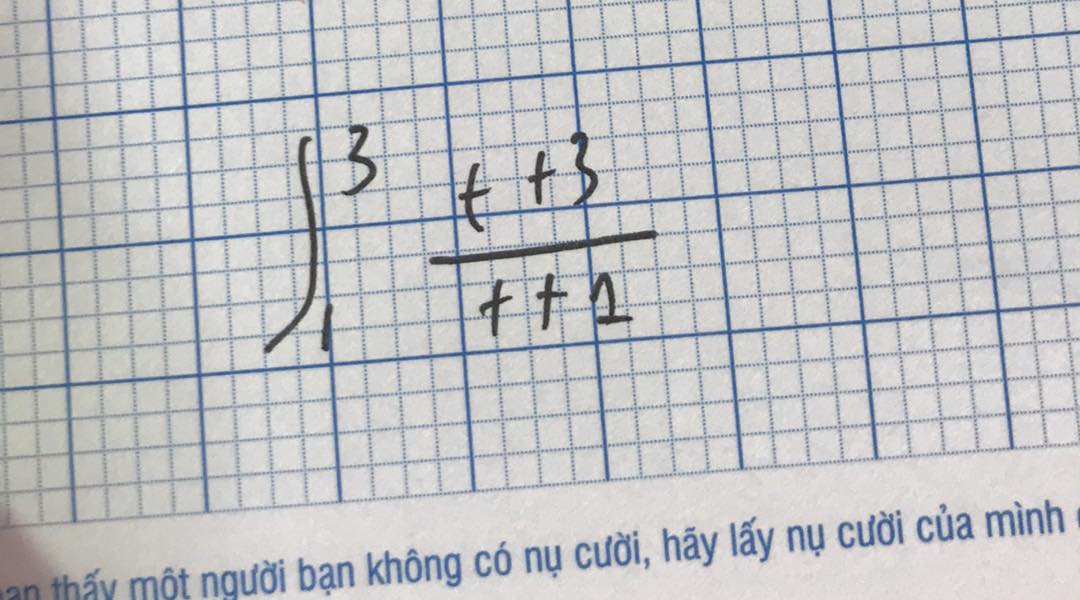 ∫ 3 t + 3
1 t + 1
thấy một người bạn không có nụ cười, hãy lấy nụ cười của mình